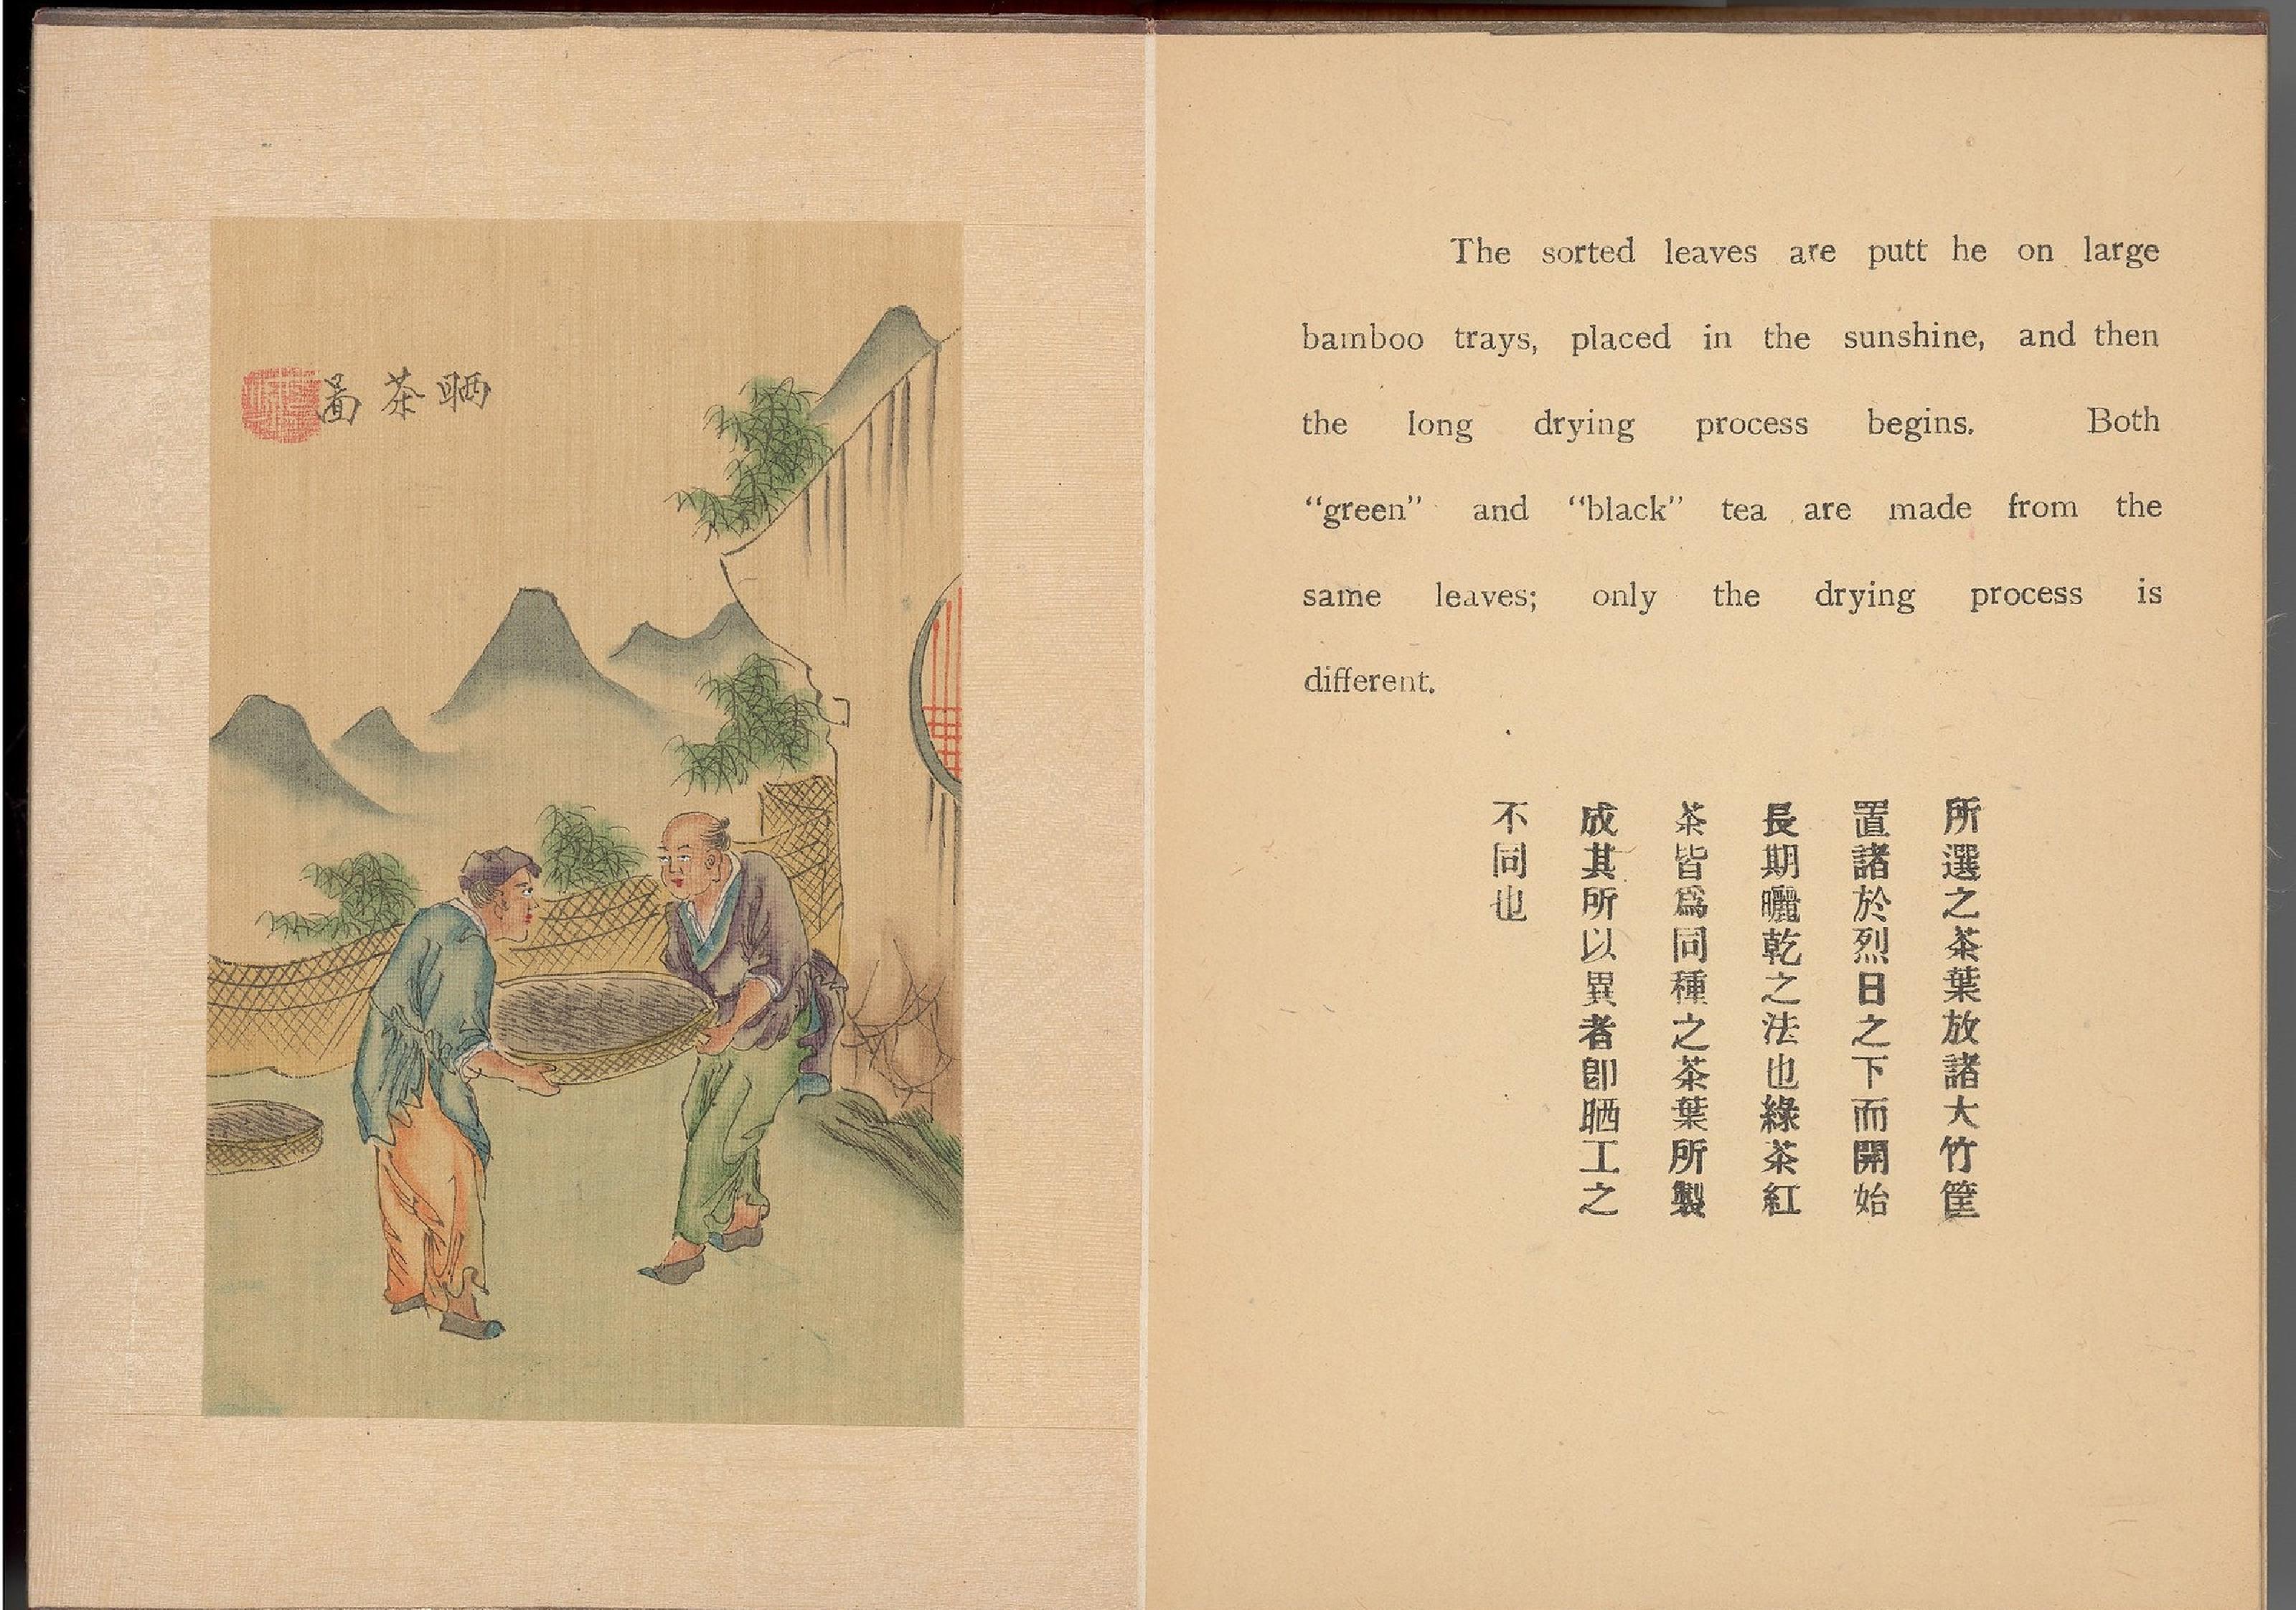 晒茶啚
The sorted leaves are putt he on large
bamboo trays, placed in the sunshine, and then
the long drying process begins. Both
“green” and “black” tea are made from the
same leaves; only the drying process is
different.
所選之茶葉放諸大竹筐
置諸於烈日之下而開始
長期曬乾之法也綠茶紅
茶皆爲同種之茶葉所製
成其所以異者卽晒工之
不同也